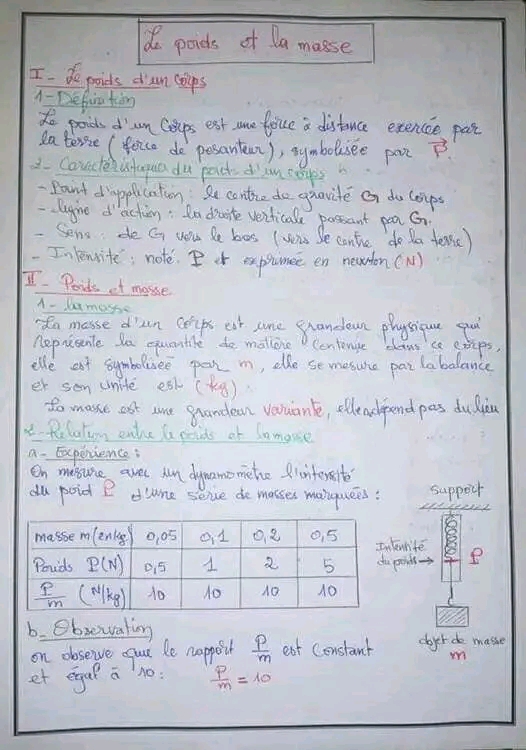 Le poids et la masse
I - Le poids d'un corps
1 - Définition
Le poids d'un Corps est une force à distance exercée par
la terre (force de pesanteur), symbolisée par P⃗.
2 - Caractéristiques du poids d'un corps
- Point d'application : le centre de gravité G du corps
- ligne d'action : la droite verticale passant par G.
- Sens : de G vers le bas (vers le centre de la terre)
- Intensité : noté P et exprimée en newton (N)
II - Poids et masse
1 - la masse
La masse d'un Corps est une grandeur physique qui
représente la quantité de matière contenue dans ce corps,
elle est symbolisée par m, elle se mesure par la balance
et son unité est (kg).
La masse est une grandeur variante, elle dépend pas du lieu
2 - Relation entre le poids et la masse
a - Expérience :
On mesure avec un dynamomètre l'intensité
du poid P d'une série de masses marquées :
masse m (en kg) 0,05 0,1 0,2 0,5
Poids P(N) 0,5 1 2 5
P/m (N/kg) 10 10 10 10
support
Intensité
du poids → P
objet de masse
m
b - Observation
on observe que le rapport P/m est Constant
et égal à 10 : P/m = 10